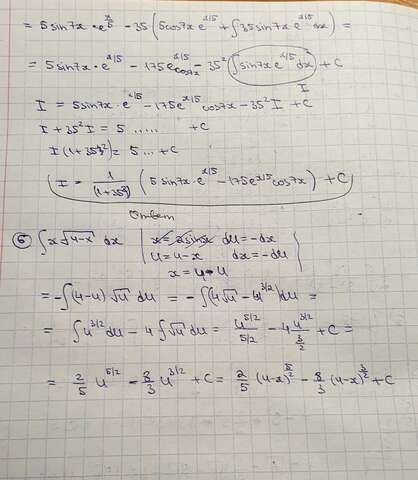 = 5 sin7x · e^(x/5) - 35 (5cos7x e^(x/5) + ∫35 sin7x e^(x/5) dx) =
= 5 sin7x · e^(x/5) - 175 e^(x/5) cos7x - 35² (∫ sin7x e^(x/5) dx) + C
I
I = 5sin7x · e^(x/5) - 175e^(x/5) cos7x - 35² I + C
I + 35² I = 5 ..... + C
I (1+35²) = 5 ... + C
I = 1/(1+35²) (5 sin7x · e^(x/5) - 175e^(x/5) cos7x) + C
Ответ
⑤ ∫ x √(4-x) dx | du = -dx
u = 4-x dx = -du
x = 4-u
= -∫(4-u) √u du = -∫(4√u - u^(3/2)) du =
= ∫ u^(3/2) du - 4 ∫ √u du = u^(5/2)/(5/2) - 4 u^(3/2)/(3/2) + C =
= 2/5 u^(5/2) - 8/3 u^(3/2) + C = 2/5 (4-x)^(5/2) - 8/3 (4-x)^(3/2) + C